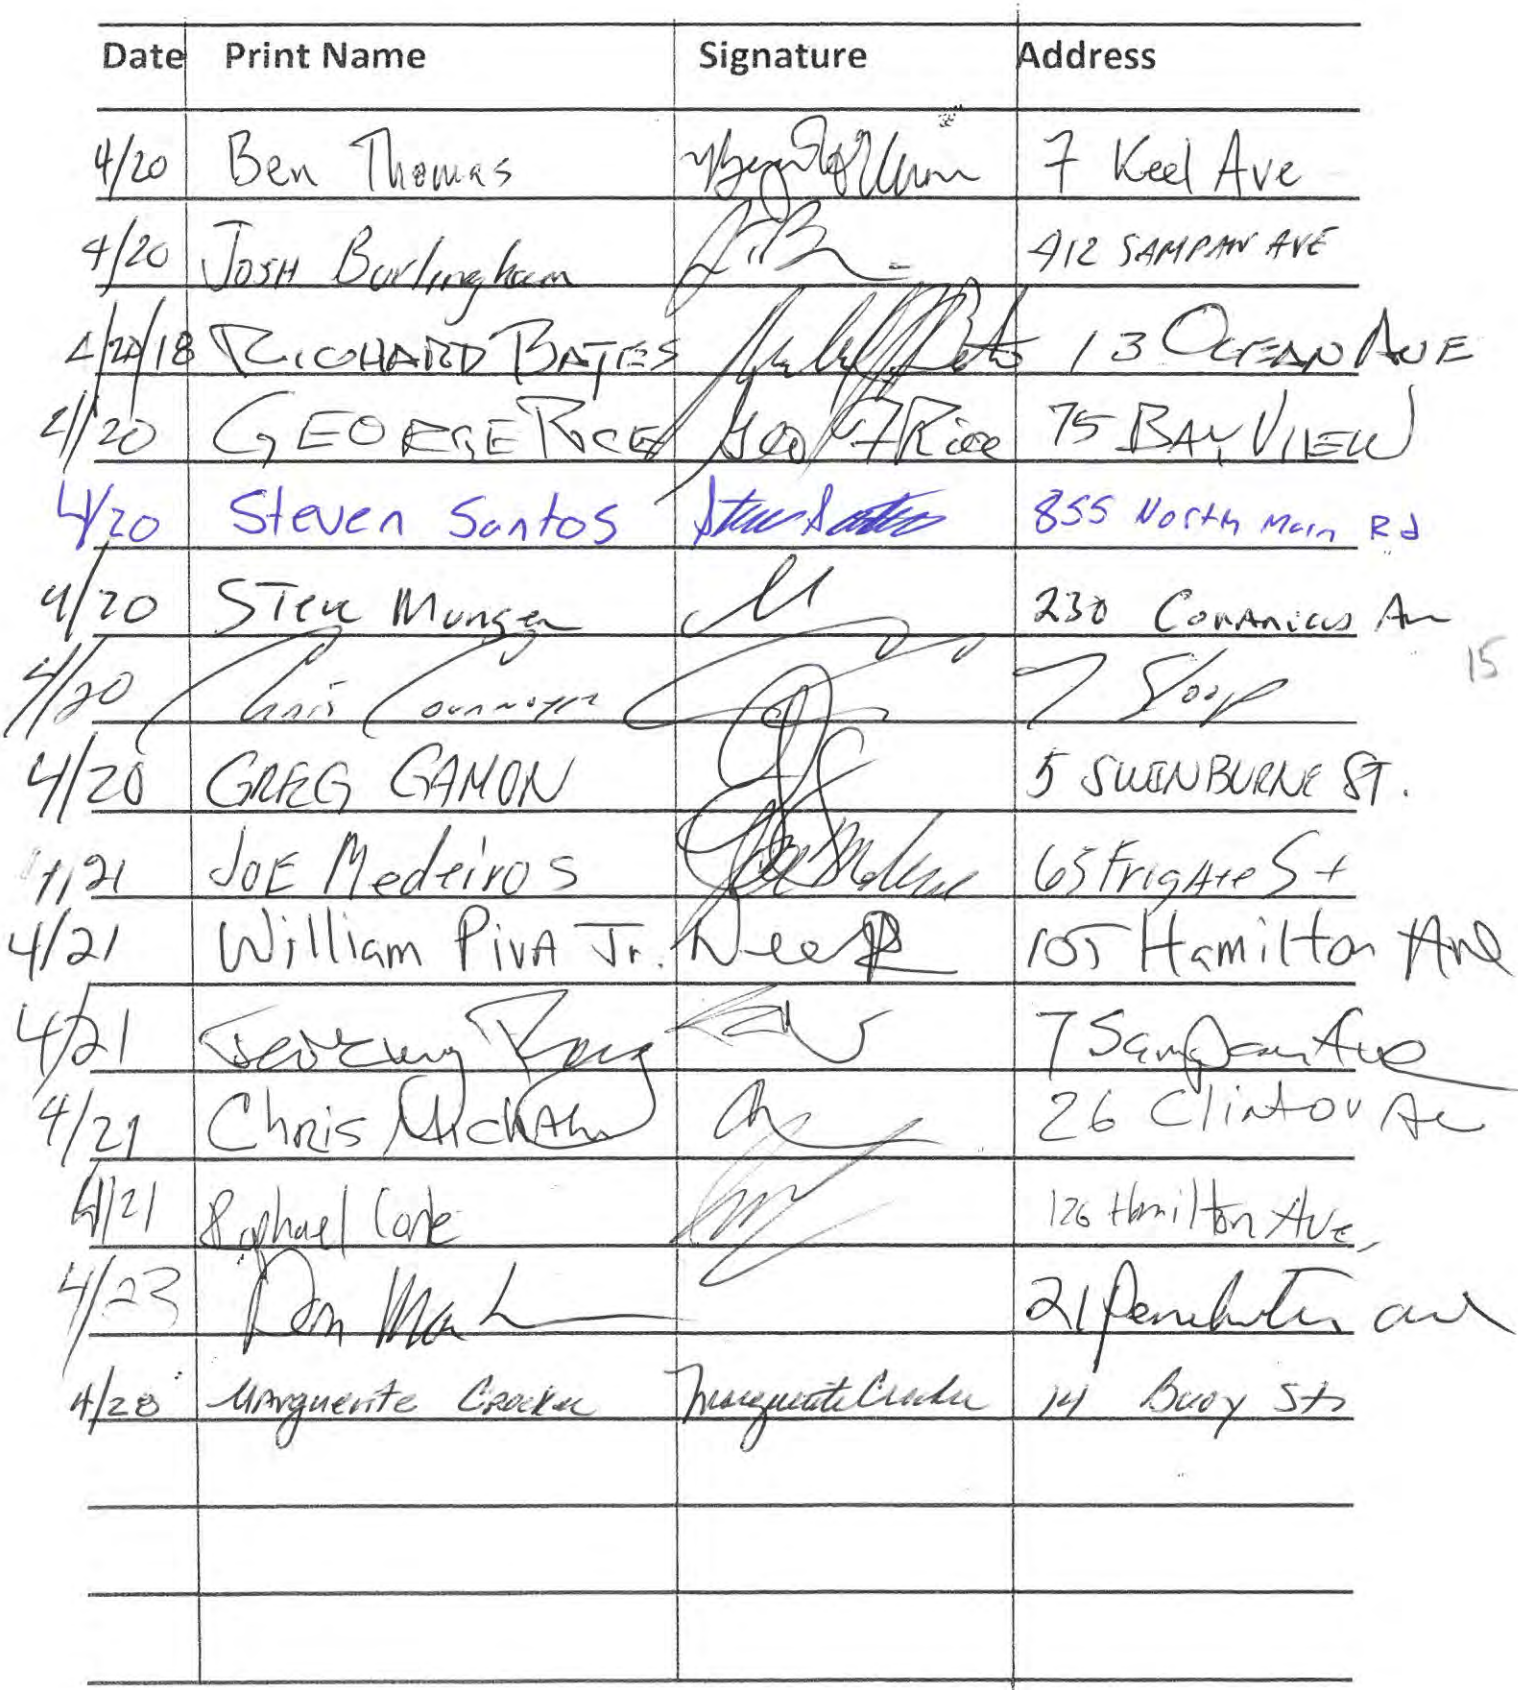 Date Print Name Signature Address
4/20 Ben Thomas 7 Keel Ave
4/20 JOSH Burlingham 412 SAMPAN AVE
4/20/18 RICHARD BATES 13 OCEAN AVE
4/20 GEORGE RICE Geo F Rice 75 BAY VIEW
4/20 Steven Santos Steve Santos 855 North Main Rd
4/20 Steve Munger 230 Conanicus Av
15
4/20 Chris 7 Sloop
4/20 GREG GAMON 5 SWINBURNE ST.
4/21 JOE Medeiros 65 FrigAte St
4/21 William PivA Jr. 105 Hamilton Ave
4/21 7 Sampan Ave
4/21 Chris 26 Clinton Av
4/21 Raphael 126 Hamilton Ave,
4/23 Don 21 ave
4/28 Marguerite Crocker Marguerite Crocker 14 Buoy St